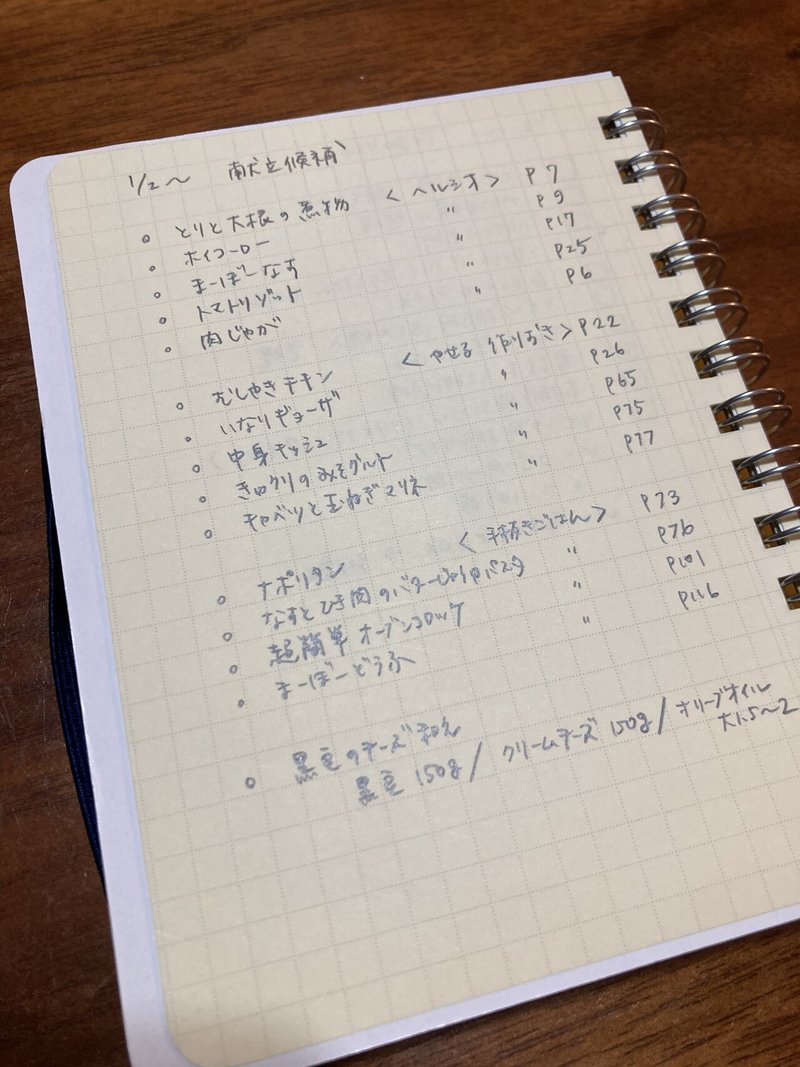 1/2〜 献立候補
。とりと大根の煮物 <ヘルシオ> P7
。ホイコーロー 〃 P9
。まーぼーなす 〃 P17
。トマトリゾット 〃 P25
。肉じゃが 〃 P6
。むしやきチキン <やせる作りおき> P22
。いなりギョーザ 〃 P26
。中身キッシュ 〃 P65
。きゅウリのみそグルト 〃 P75
。キャベツと玉ねぎマリネ 〃 P77
。ナポリタン <手抜きごはん> P73
。なすとひき肉のバターじょうゆパスタ 〃 P76
。超簡単オーブンコロッケ 〃 P101
。まーぼーどうふ 〃 P116
。黒豆のチーズ和え
黒豆 150g / クリームチーズ 150g / オリーブオイル 大1.5〜2